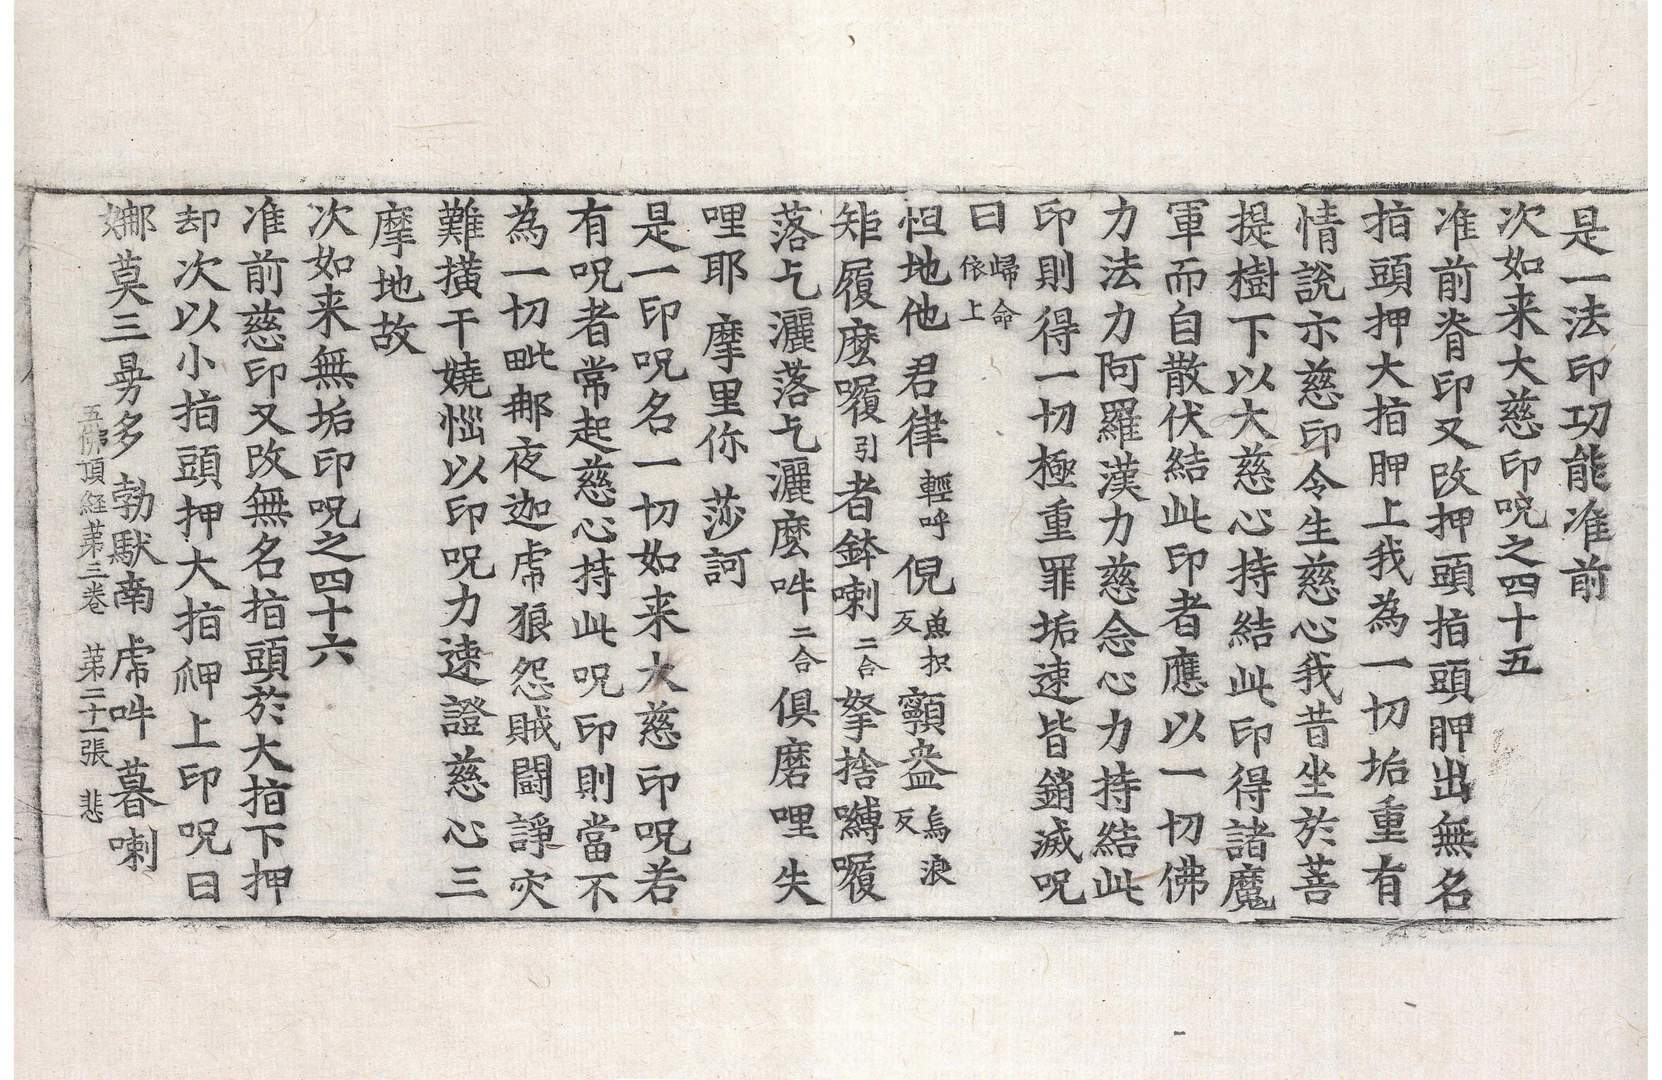 是一法印功能准前
次如来大慈印呪之四十五
准前脊印又改押頭指頭胛出無名
指頭押大指胛上我為一切垢重有
情說示慈印令生慈心我昔坐於菩
提樹下以大慈心持結此印得諸魔
軍而自散伏結此印者應以一切佛
力法力阿羅漢力慈念心力持結此
印則得一切極重罪垢速皆銷滅呪
曰歸命依上
怛地他 君律輕呼倪魚枳反顖盎烏浪反
矩履麽囇引者鉢喇二合拏捨嚩囇
落乞灑落乞灑麽吽二合俱磨哩 失
哩耶 摩里你 莎訶
是一印呪名一切如来大慈印呪若
有呪者常起慈心持此呪印則當不
為一切毗那夜迦虎狼怨賊鬭諍灾
難撗干嬈惱以印呪力速證慈心三
摩地故
次如来無垢印呪之四十六
准前慈印又改無名指頭於大指下押
却次以小指頭押大指胛上印呪曰
娜莫三曼多 勃馱南 虎吽 暮喇
五佛頂経苐三卷 苐二十一張 悲